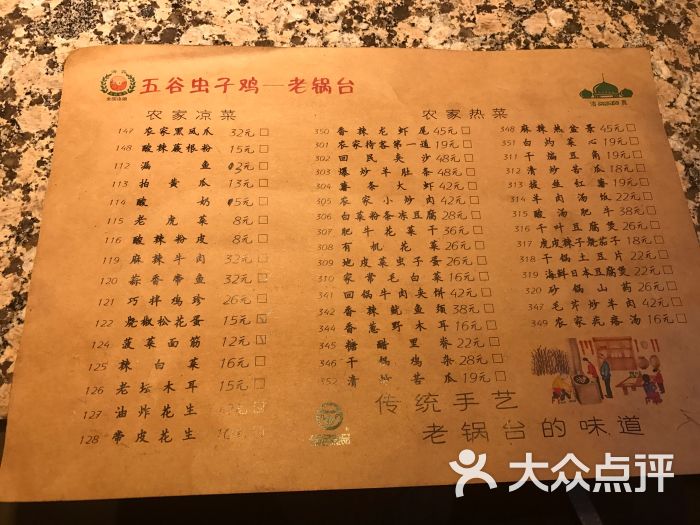 五谷虫子鸡—老锅台
农家凉菜
147 农家黑凤爪 32元
148 酸辣蕨根粉 15元
112 温鱼 12元
113 拍黄瓜 13元
114 酸奶 15元
115 老虎菜 8元
116 酸辣粉皮 8元
119 麻辣牛肉 32元
120 蒜香带鱼 32元
121 巧拌鸡珍 26元
122 烧椒松花蛋 15元
124 菠菜面筋 12元
125 辣白菜 16元
126 老坛木耳 15元
127 油炸花生 12元
128 带皮花生 16元
农家热菜
350 香辣龙虾尾 45元
301 农家待客第一道 19元
302 回民夹沙 48元
303 爆炒羊肚条 48元
304 薯条大虾 42元
305 农家小炒肉 42元
306 白菜粉条冻豆腐 28元
307 肥牛花菜干 36元
308 有机花菜 26元
309 地皮菜虫子蛋 26元
310 家常毛白菜 16元
341 回锅牛肉夹饼 42元
342 香辣鱿鱼须 38元
344 香葱野木耳 16元
345 糖醋里脊 22元
346 干锅鸡杂 28元
352 清炒苦瓜 19元
348 麻辣热盆景 45元
351 白灼菜心 19元
311 干煸豆角 19元
312 清炒苦瓜 18元
313 拔丝红薯 19元
314 羊肉汤饭 22元
315 酸汤肥牛 38元
316 千叶豆腐煲 26元
317 虎皮辣子烧茄子 18元
318 干锅土豆片 22元
319 海鲜日本豆腐煲 22元
320 砂锅山药 26元
347 毛芹炒羊肉 42元
349 农家疙瘩汤 16元
传统手艺
老锅台的味道
大众点评